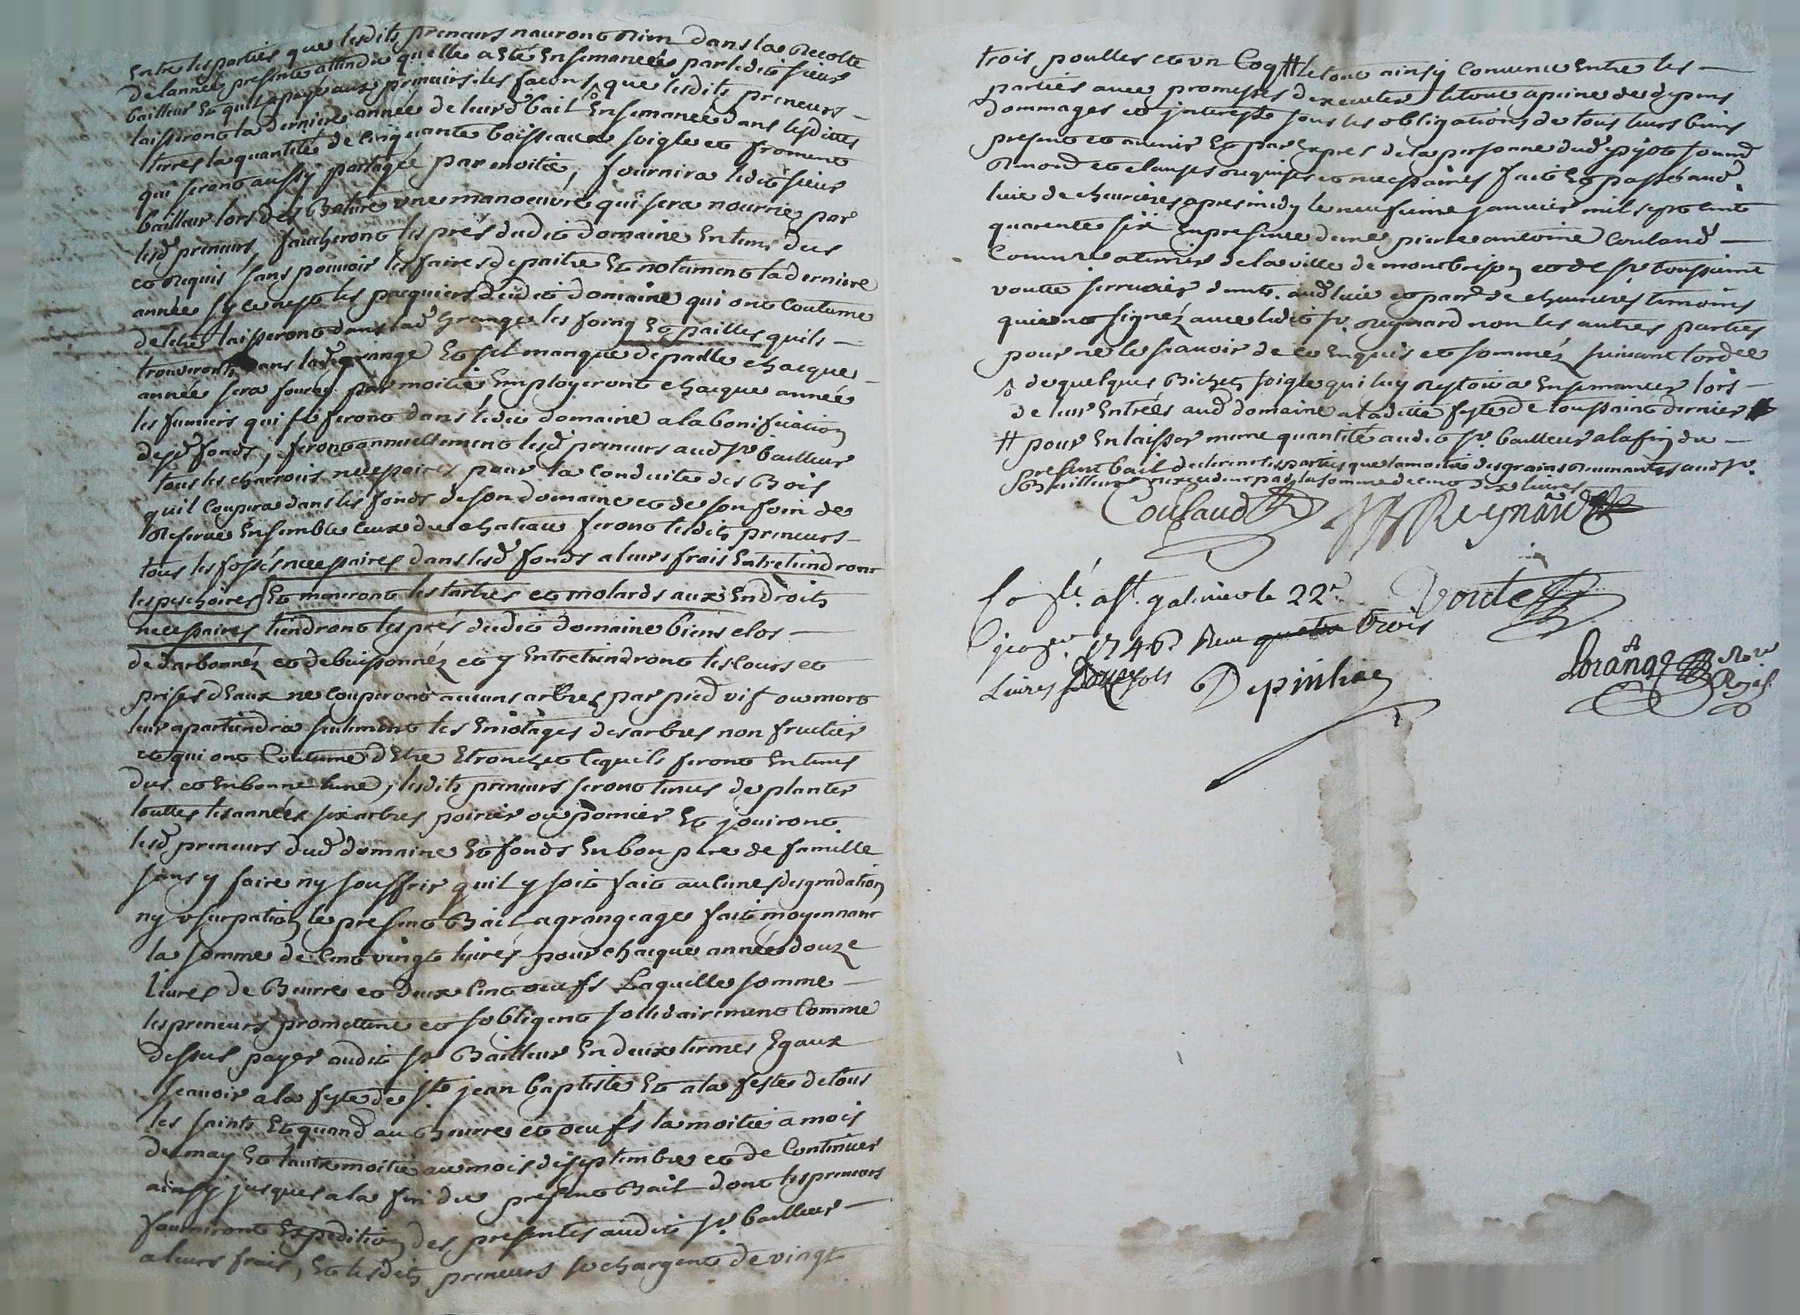 Entre les parties que lesdits preneurs nauront Rien dans la Recolte
de lannée presente attendu quelle a Eté Ensemancée par ledit sieur
bailleur Et quil a payé aux preneurs les façons, que lesdits preneurs
laisseront la derniere année de leurd bail Ensemancé dans lesdittes
terres la quantité de cinquante boisseaux soigle et froment
qui seront aussy partagé par moitié, fournira ledit sieur
bailleur lors des Bature une manoeuvre qui sera nourrie par
lesd preneurs, faucheront les prés dudit domaine En tems deu
et Requis sans pouvoir les faires depaitre Et notament la derniere
année sy ce nest les paquiers dudit domaine qui ont Coutume
de letre laisseront dans lad Grange les foing Et pailles quils
trouveront dans lad grange Et sil manque de paille chacque
année sera fourny par moitié Employeront chacque année
les fumiers qui se feront dans ledit domaine a la bonification
desd fonds, feront annuellement lesd preneurs aud sr bailleur
tous les charrois necessaires pour la conduite des Bois
quil Coupera dans les fonds de son domaine et de son foin de
Reserve Ensemble ceux du chateau feront lesdits preneurs
tous les fossés necessaires dans lesd fonds a leurs frais Entretiendront
les peschoires Et meneront les tartres et molards aux Endroits
necessaires tiendront les prés dudit domaine biens clos
de darbonnéz et debuissonnéz et y Entretiendront les cours et
prises dEaux ne Couperont aucuns arbres par pied vif ou mort
leur apartiendra seulement les Emotages des arbres non fruitier
et qui ont Coutume dEtre Etronchet lequels feront En tems
dus et En bonne lune, lesdits preneurs seront tenus de planter
touttes les années six arbres poirier ou pomier Et jouiront
lesd preneurs dud domaine Et fonds En bon pere de famille
sans y faire ny souffrir quil y soit fait aucunes desgradation
ny usurpation le present Bail a grangeage fait moyennant
la somme de Cent vingt livres pour chacque année douze
livres de Beurre et deux Cent oeufs Laquelle somme
les preneurs promettent et sobligent sollidairement Comme
dessus payer audit sr Bailleur En deux termes Egaux
scavoir a la feste de st jean baptiste Et a la feste de tous
les saints Et quand au Beurre et oeufs la moitié a mois
de may Et lautre moitié au mois de septembre et de Continuer
ainsy jusques a la fin du present Bail dont les preneurs
fourniront Expedition des presentes audit sr bailleur
a leurs frais, Et lesdits preneurs se chargent de vingt
trois poulles et un Coq # le tout ainsy Convenu Entre les
parties avec promesses dexecuter le tout a peine de depens
dommages et interests sous les obligations de tous leurs biens
present et avenir Et par Expres de la personne dud
et clauses requises et necessaires fait Et passé aud
lieu de chevrieres apres midy le neufieme janvier mil sept cent
quarente six En presence de me pierre antoine Coulaud
Comre a terrier de la ville de montbrison et de sr toussaint
voutte serrurier demt. aud lieu et parr de chevrieres temoins
qui ont signéz avec ledit sr. reynard non les autres parties
pour ne le scavoir de ce Enquis et sommés suivant lordce
de quelques Bichets soigle qui luy restoit a Ensemancer lors
de leur Entrées aud domaine a laditte feste de toussaint dernier
# pour En laisser meme quantité audit sr. bailleur a la fin du
present bail declarent les parties que la moitié des grains Revenantes aud sr.
Bailleur nexcedent pas la somme de cent dix livres
Coulaud Reynard
Conlé. a st. galmier le 22e. Voute
janer. 1746 Receu quatre trois
Livres Douze sols Depinhac
Lorange Nore
Royal